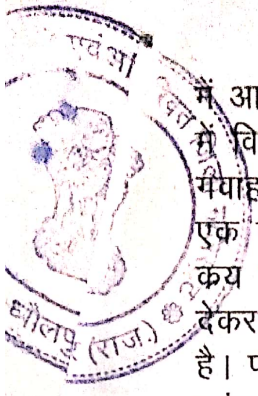 एवं
धौलपुर (राज.)
में आ
में वि
गवाह
एक
कय
देकर
है। प